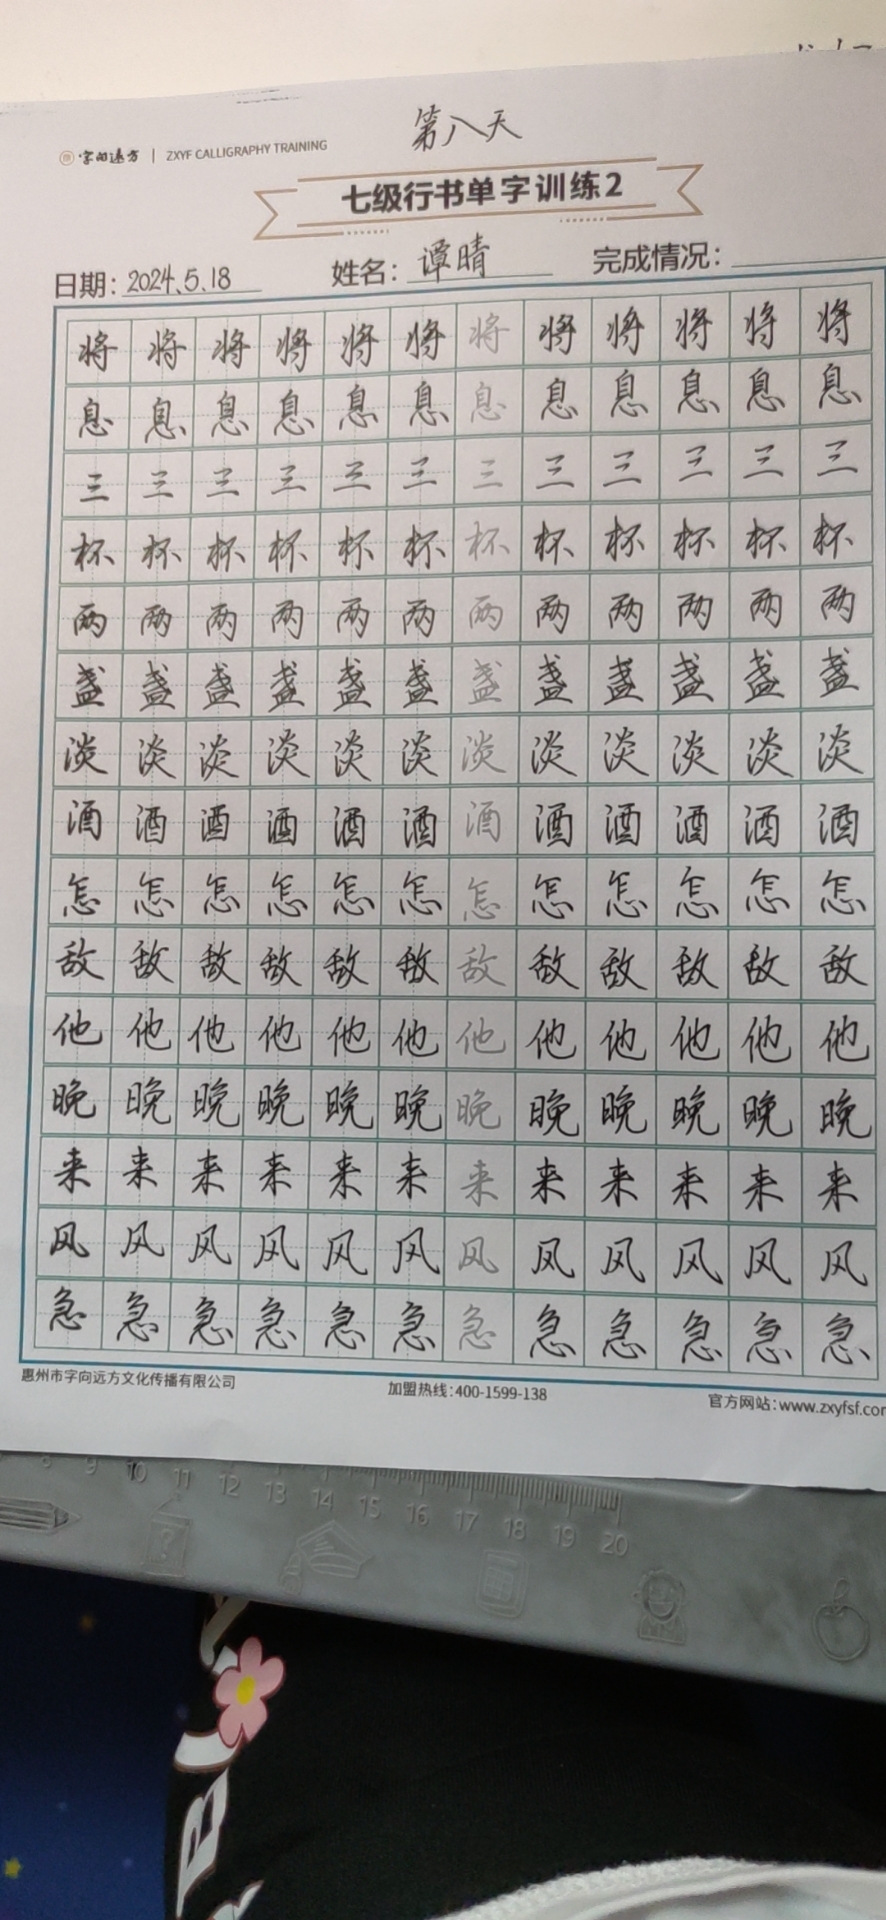 第八天
字向远方 | ZXYF CALLIGRAPHY TRAINING
七级行书单字训练2
日期：2024.5.18 姓名：谭晴 完成情况：
将将将将将将将将将将将将
息息息息息息息息息息息息
三三三三三三三三三三三三
杯杯杯杯杯杯杯杯杯杯杯杯
两两两两两两两两两两两两
盏盏盏盏盏盏盏盏盏盏盏盏
淡淡淡淡淡淡淡淡淡淡淡淡
酒酒酒酒酒酒酒酒酒酒酒酒
怎怎怎怎怎怎怎怎怎怎怎怎
敌敌敌敌敌敌敌敌敌敌敌敌
他他他他他他他他他他他他
晚晚晚晚晚晚晚晚晚晚晚晚
来来来来来来来来来来来来
风风风风风风风风风风风风
急急急急急急急急急急急急
惠州市字向远方文化传播有限公司 加盟热线：400-1599-138 官方网站：www.zxyfsf.com
8 9 10 11 12 13 14 15 16 17 18 19 20
B